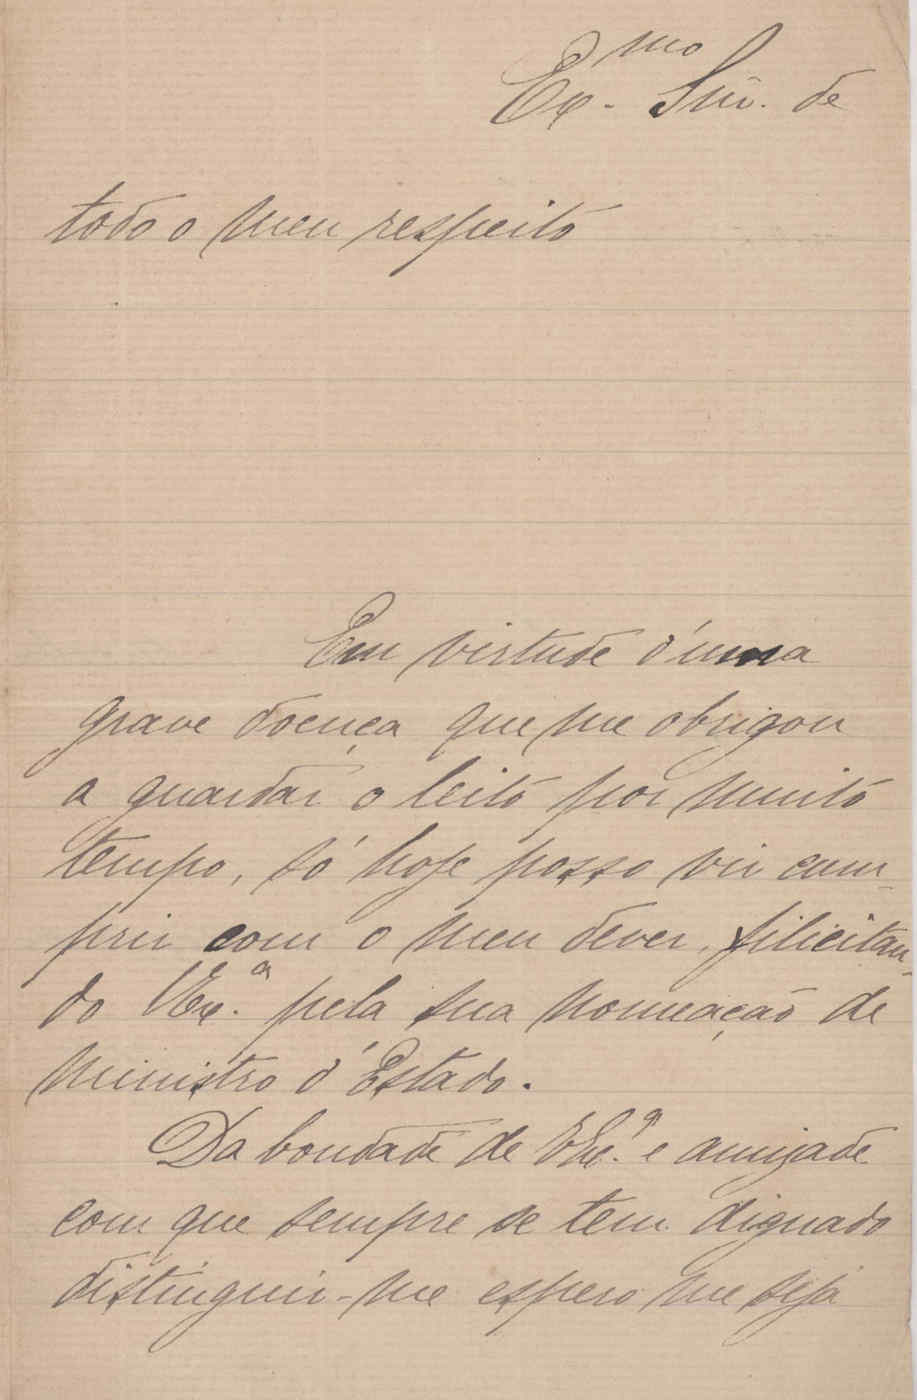 Ex.mo Snr. de
todo o meu respeito
Em virtude d'uma
grave doença que me obrigou
a guardar o leito por muito
tempo, só hoje posso vir cum-
prir com o meu dever, filicitan-
do V Ex.a pela sua nomeação de
ministro d'Estado.
Da bondade de V Ex.a e amizade
com que sempre se tem dignado
distinguir-me espero me seja